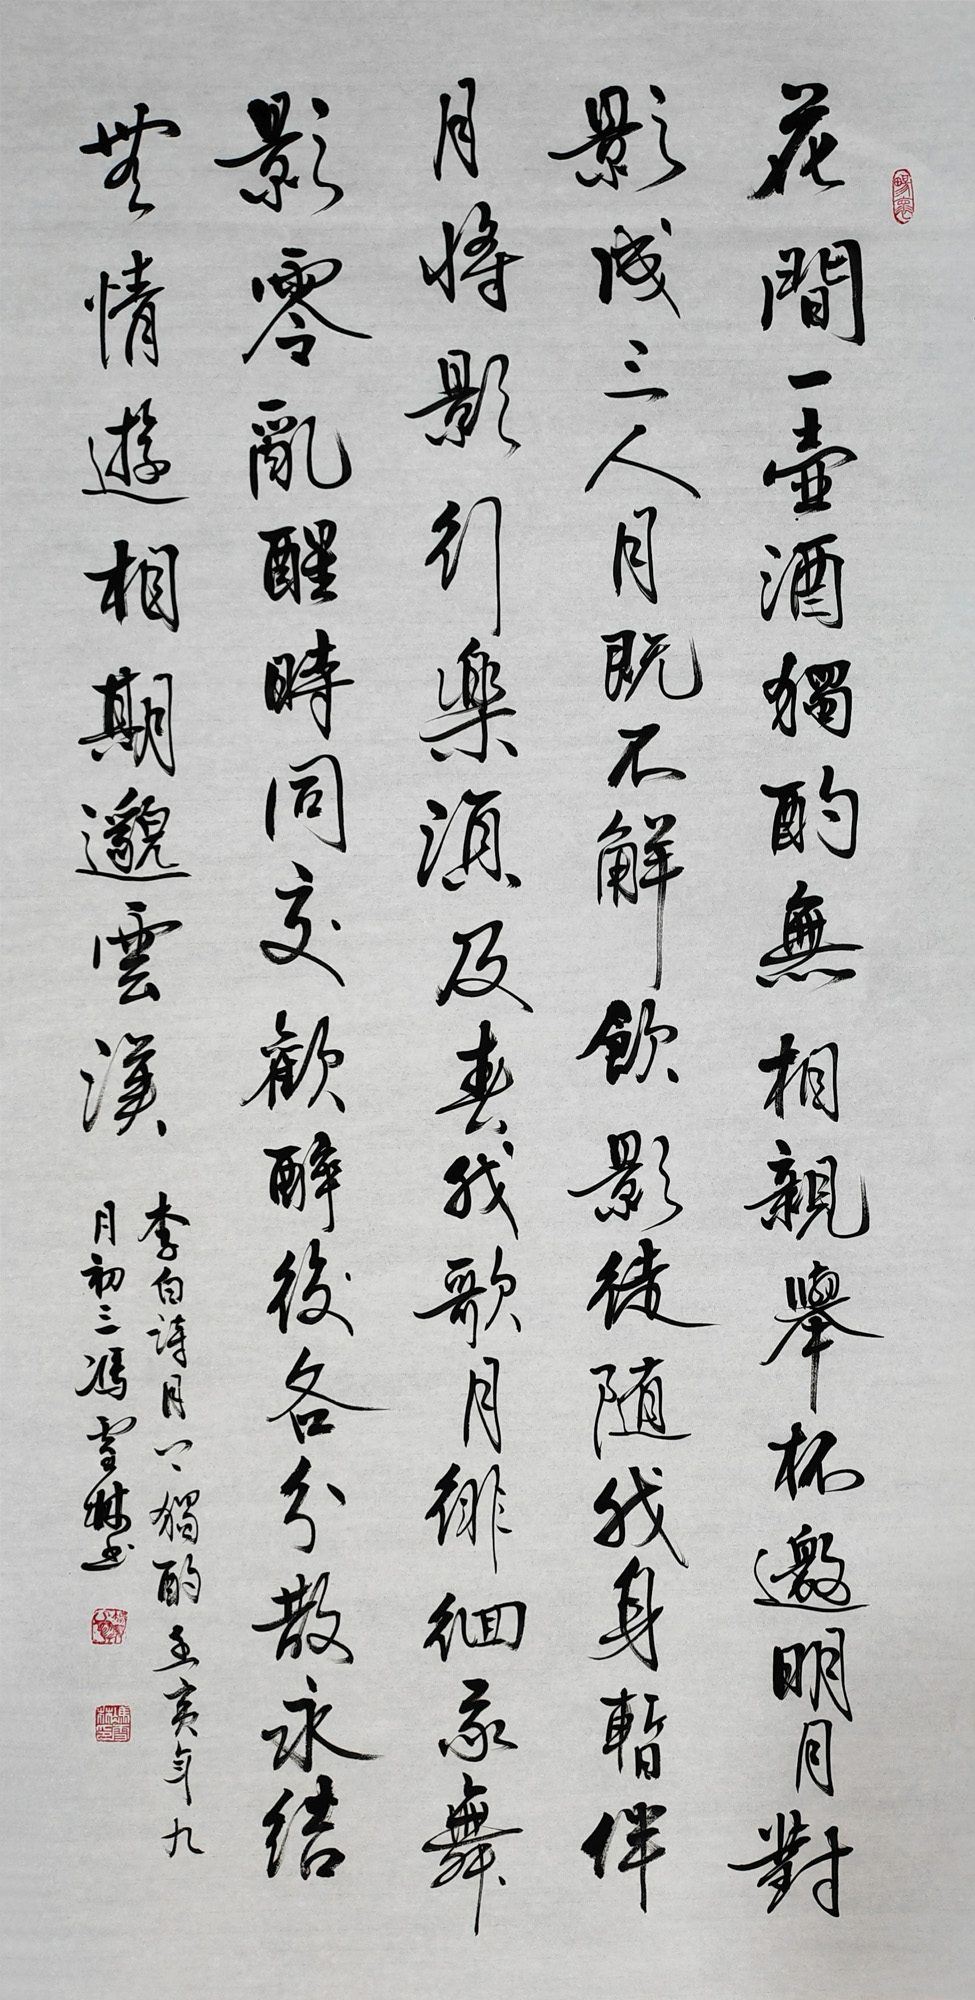 花間一壺酒獨酌無相親舉杯邀明月對
影成三人月既不解飲影徒随我身暫伴
月將影行樂須及春我歌月徘徊我舞
影零亂醒時同交歡醉後各分散永結
無情遊相期邈雲漢
李白詩月下獨酌壬寅年九
月初三馮雪林书